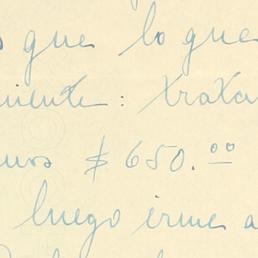 s que lo que
niente: trata
unos $650.00
luego irme a